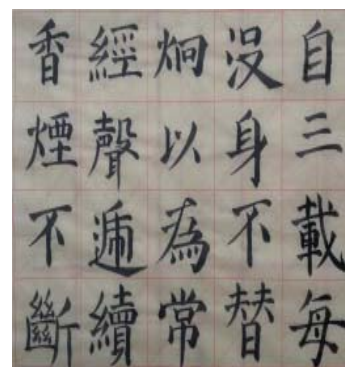 自三載每
没身不替
炯以為常
經聲遞續
香煙不斷